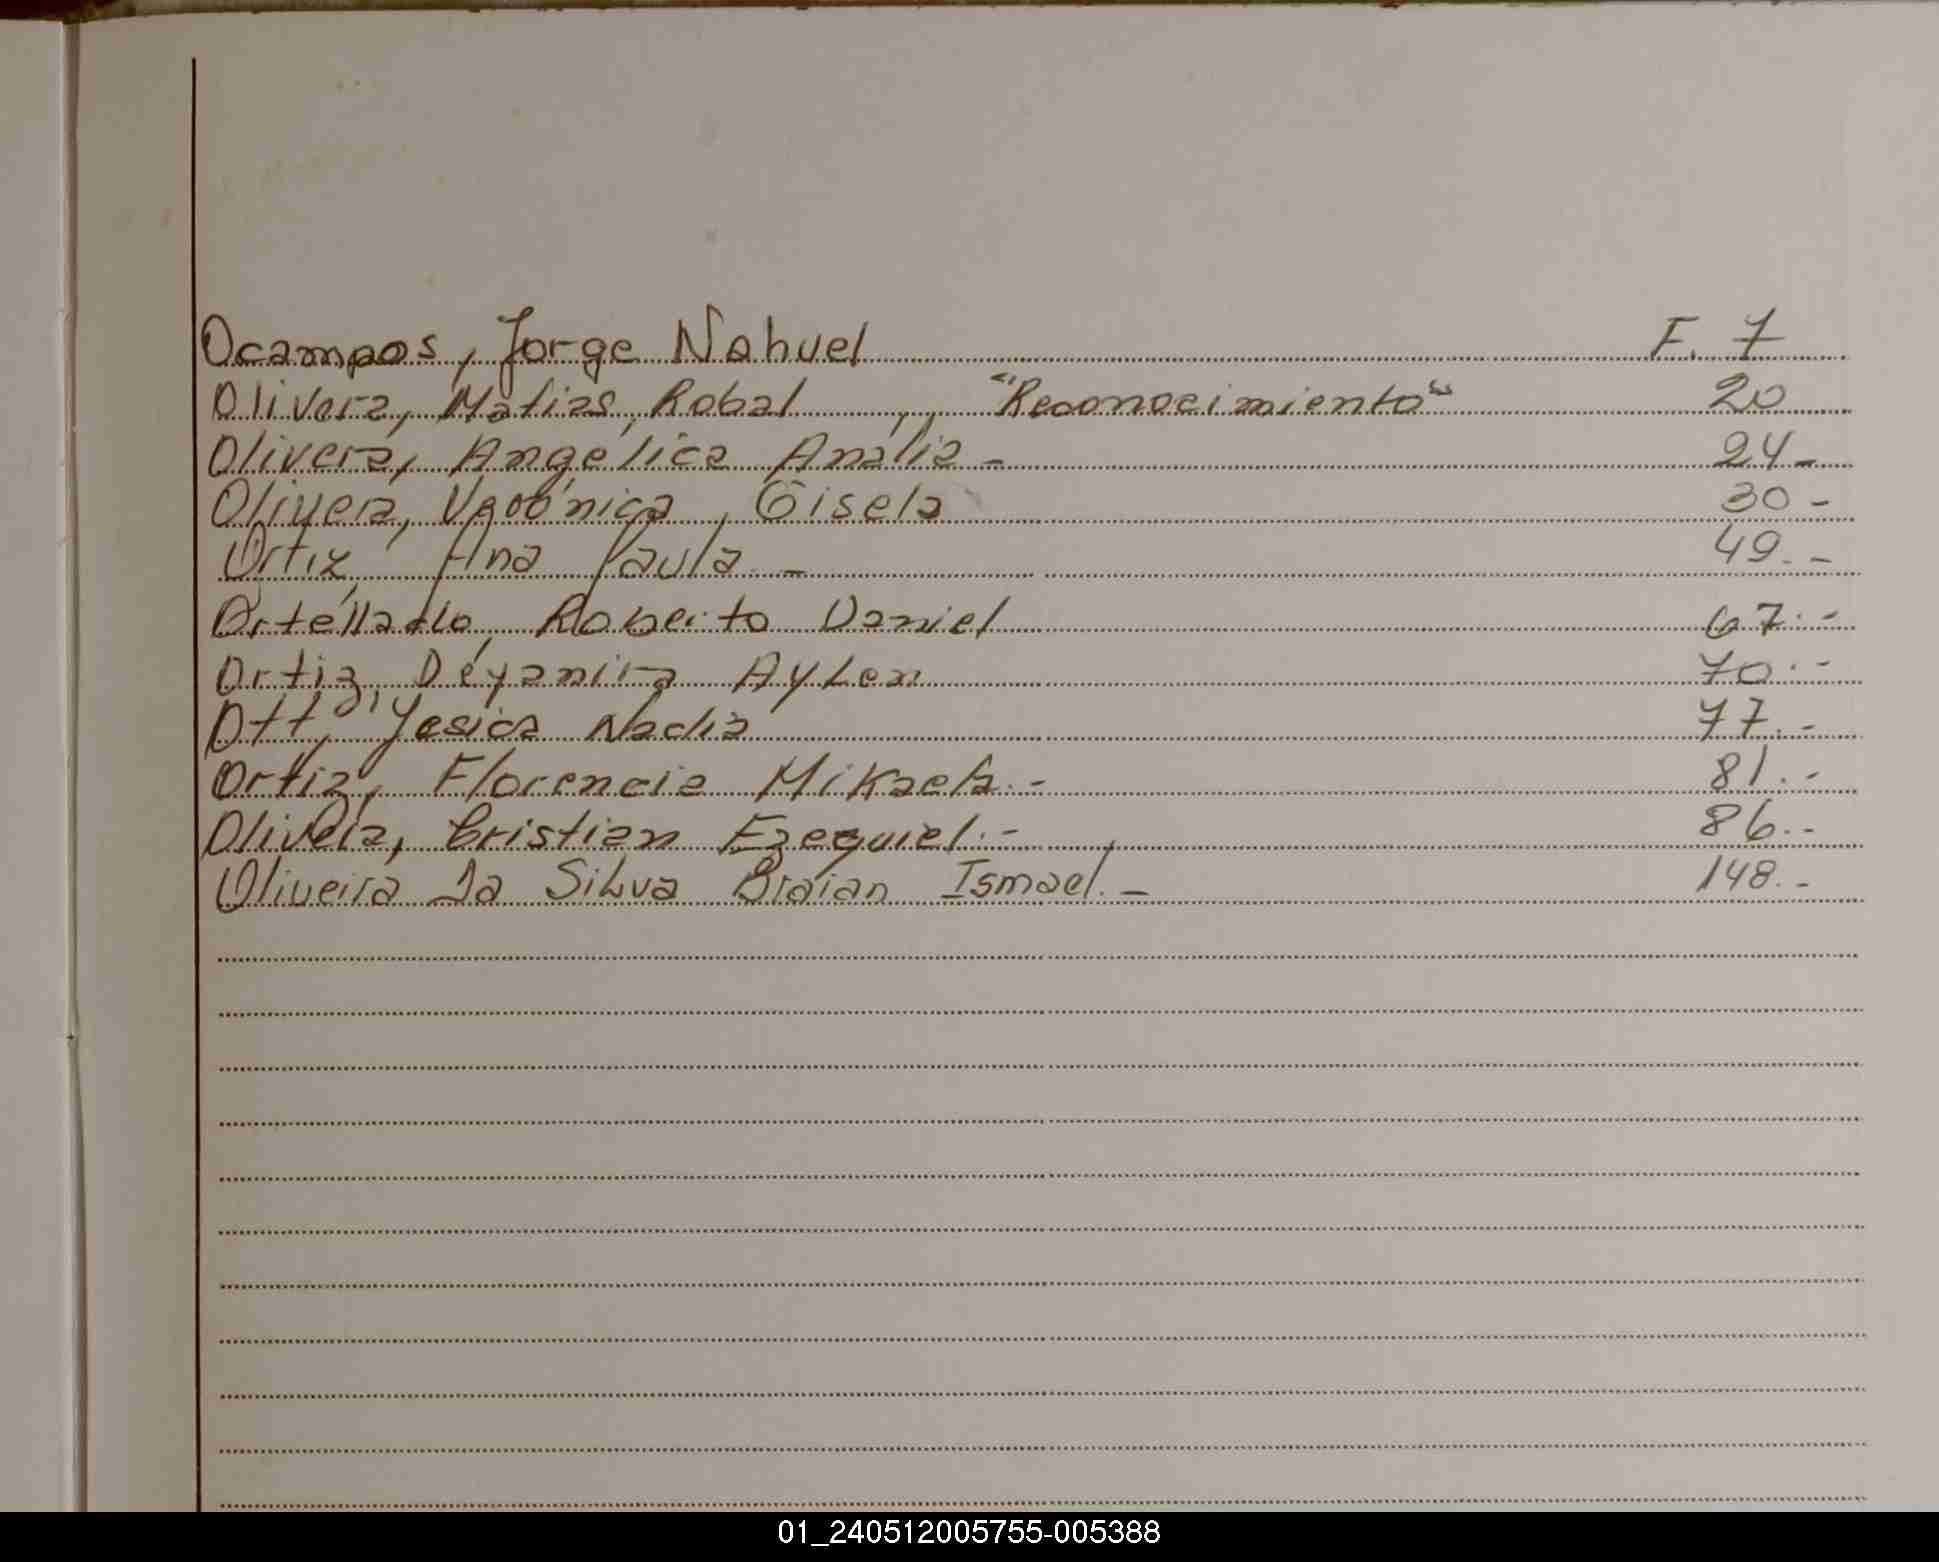 Ocampos, Jorge Nahuel F. 7
Olivera, Matias, Robal "Reconocimiento" 20
Olivera, Angélica Analia - 24-
Olivera, Gisela 30-
Ortiz, Ana Paula - 49.-
Ortellado, Roberto Daniel 67.-
Ortiz, Deyanira Aylen 70.-
Ott, Yesica Nadia 77.-
Ortiz, Florencia Mikaela.- 81.-
Olivera, Cristian Ezequiel.- 86.-
Oliveira Da Silva Braian Ismael.- 148.-
01_240512005755-005388